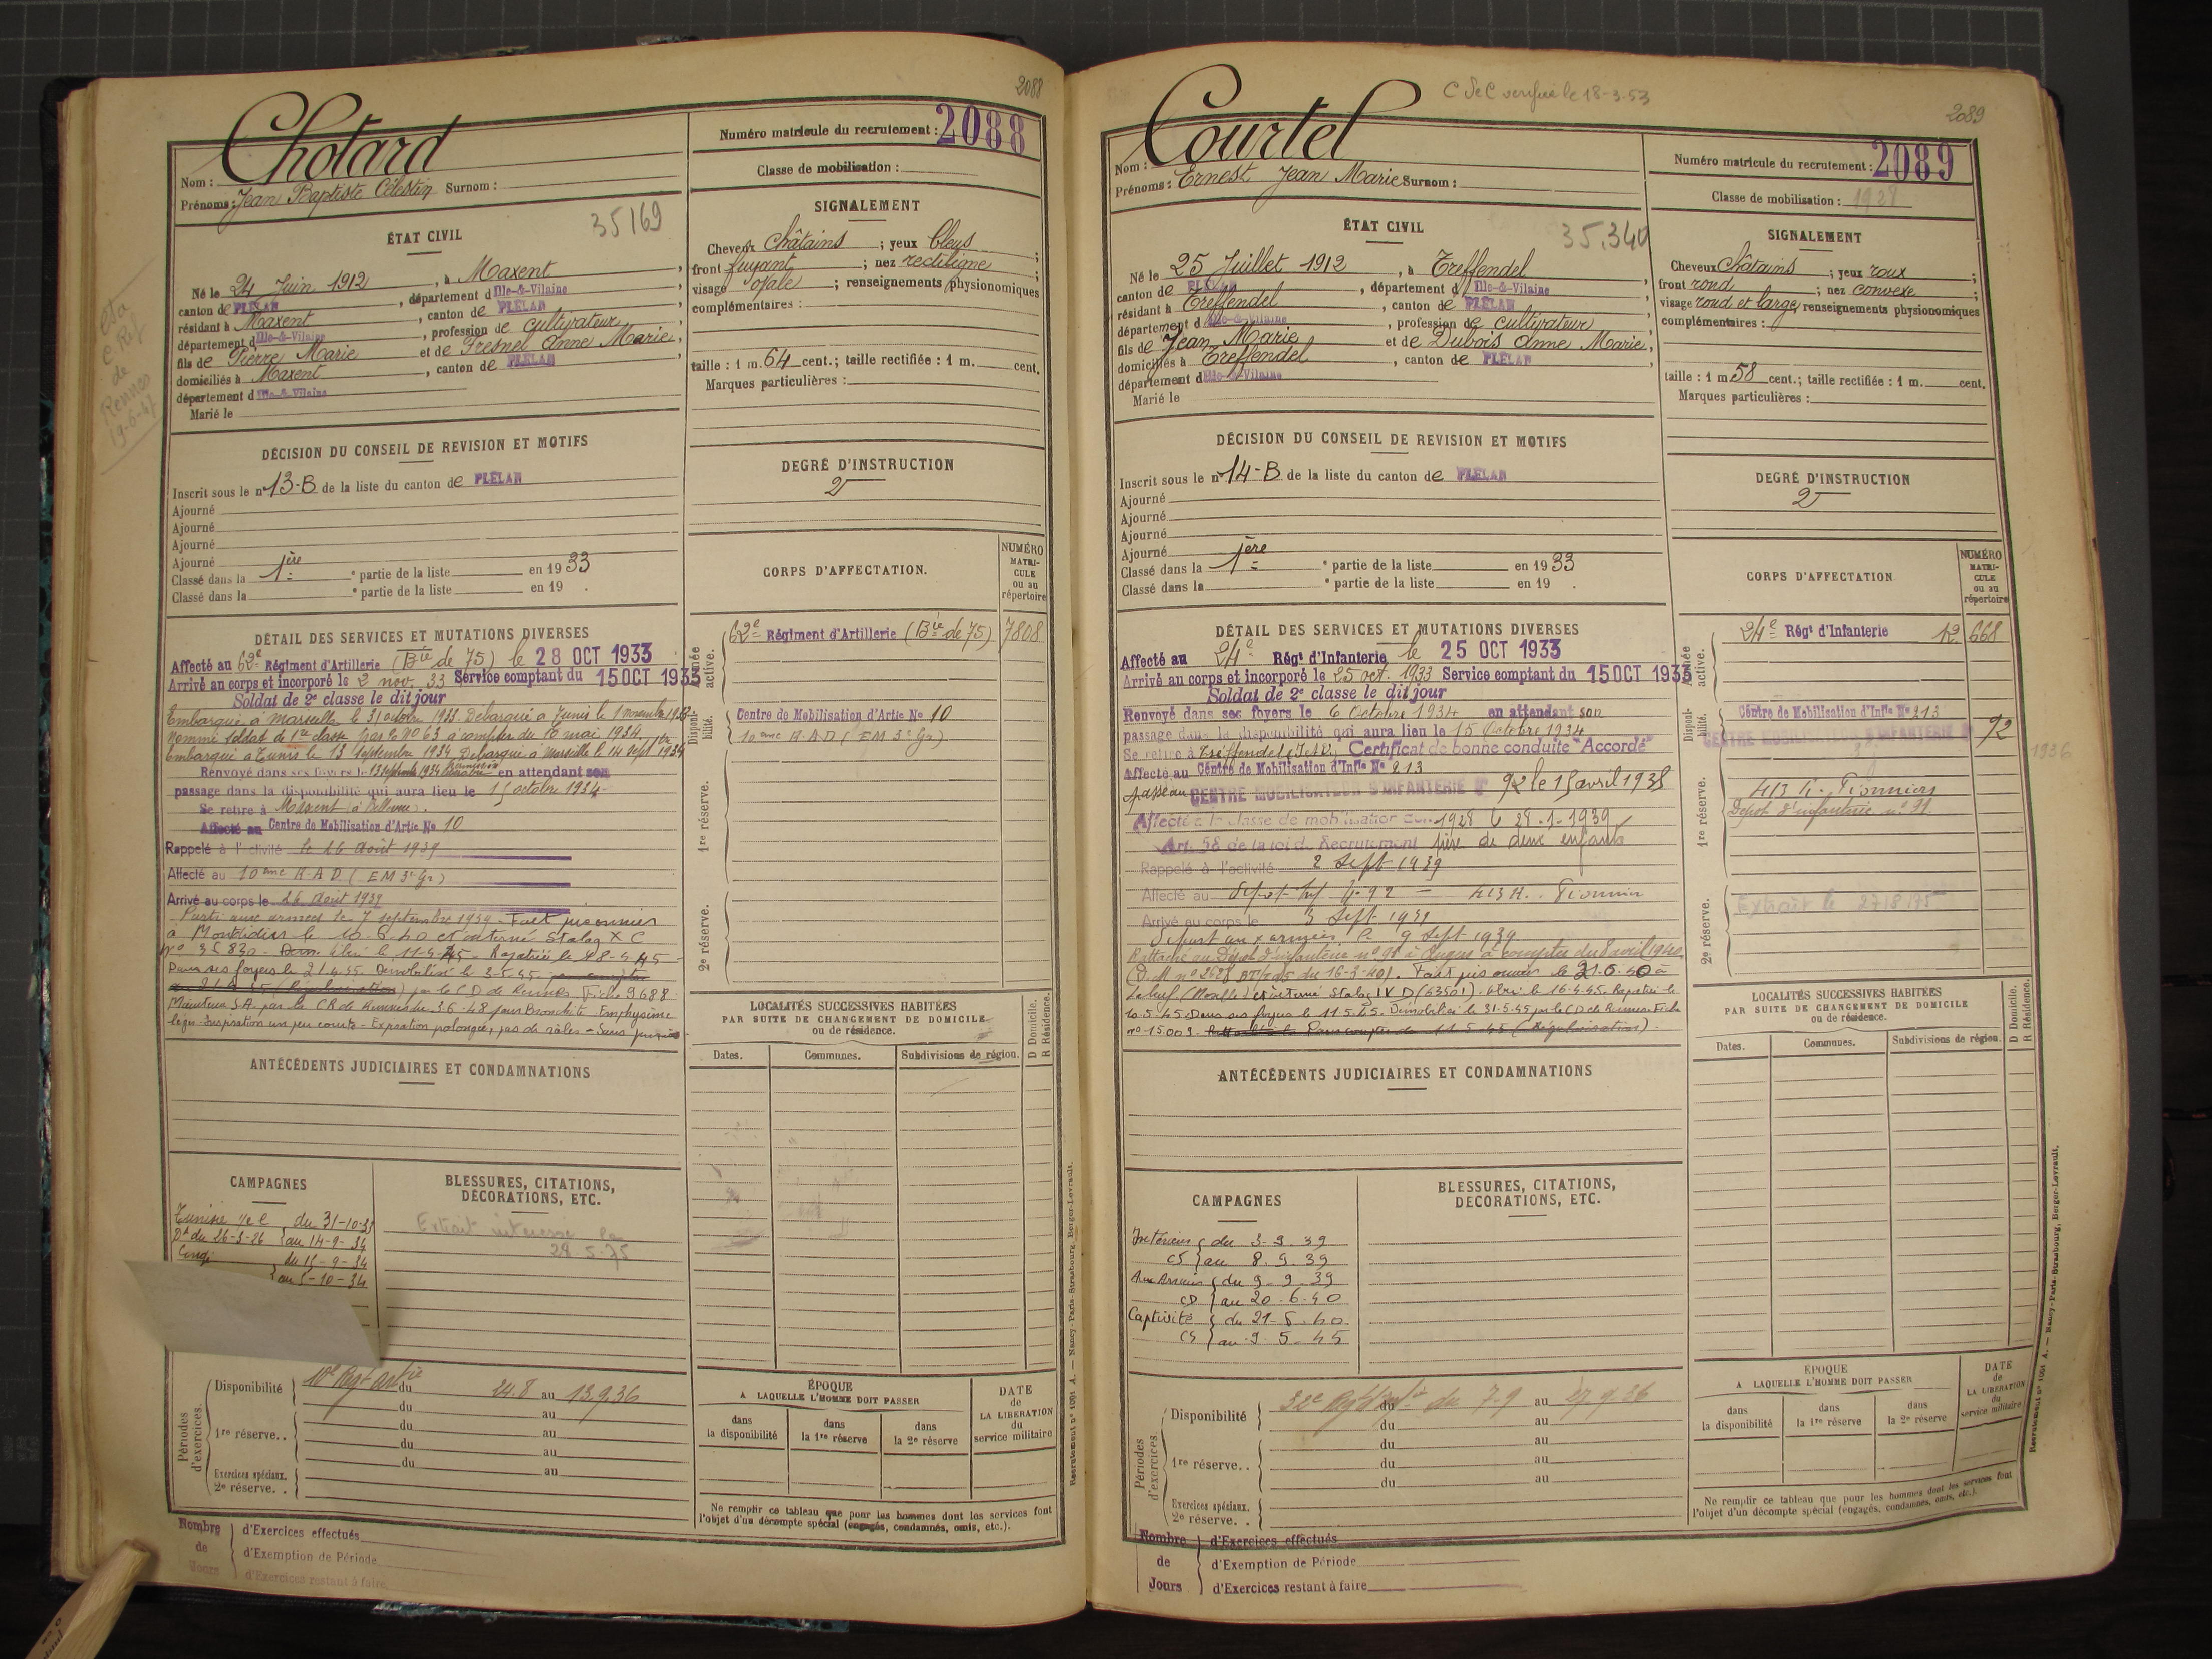 2088
Chotard
Nom :
Prénoms : Jean Baptiste Célestin Surnom :
Numéro matricule du recrutement : 2088
Classe de mobilisation :
ÉTAT CIVIL
35169
Né le 24 Juin 1912, à Maxent,
canton de PLÉLAN, département d Ille-&-Vilaine
résidant à Maxent, canton de PLÉLAN
département d Ille-&-Vilaine, profession de cultivateur,
fils de Pierre Marie et de Fresnel Anne Marie,
domiciliés à Maxent, canton de PLÉLAN
département d Ille-&-Vilaine
Marié le
SIGNALEMENT
Cheveux châtains ; yeux bleus ;
front fuyant ; nez rectiligne ;
visage ovale ; renseignements physionomiques
complémentaires :
taille : 1 m. 64 cent.; taille rectifiée : 1 m. cent.
Marques particulières :
de
Rennes
19-6-47
DÉCISION DU CONSEIL DE REVISION ET MOTIFS
Inscrit sous le n° 13-B de la liste du canton de PLÉLAN
Ajourné
Ajourné
Ajourné
Ajourné
Classé dans la 1ère partie de la liste en 1933
Classé dans la partie de la liste en 19 .
DEGRÉ D'INSTRUCTION
2
DÉTAIL DES SERVICES ET MUTATIONS DIVERSES
Affecté au 62e Régiment d'Artillerie (Bie de 75) le 28 OCT 1933
Arrivé au corps et incorporé le 2 nov. 33 Service comptant du 15 OCT 1933
Soldat de 2e classe le dit jour
Embarqué à Marseille le 31 octobre 1933. Débarqué à Tunis le 1 novembre 1933
Nommé soldat de 1re classe à compter du 10 mai 1934.
Embarqué à Tunis le 13 septembre 1934 Débarqué à Marseille le 14 sept 1934
Renvoyé dans ses foyers le 13 septembre 1934 en attendant son
passage dans la disponibilité qui aura lieu le 15 octobre 1934
Se retire à Maxent
Affecté au Centre de Mobilisation d'Artie No 10
Rappelé à l'activité le 26 Août 1939
Affecté au 10ème R.A.D (EM 3e Gr)
Arrivé au corps le 26 Août 1939
Parti aux armées le 7 septembre 1939 - Fait prisonnier
à Montdidier le 10-6-40 et interné Stalag X C
Dans ses foyers le 21.4.45. Démobilisé le 3-5-45
par le CD de Rennes. Fiche 9688.
Maintenu S.A. par la CR de Rennes du 3.6.48 pour Bronchite Emphysème
CORPS D'AFFECTATION.
NUMÉRO MATRI-CULE ou au répertoire
Armée active.
62e Régiment d'Artillerie (Bie de 75) 7808
Disponibilité.
Centre de Mobilisation d'Artie No 10
10ème R.A.D (EM 3e Gr)
1re réserve.
2e réserve.
LOCALITÉS SUCCESSIVES HABITÉES
PAR SUITE DE CHANGEMENT DE DOMICILE
ou de résidence.
D Domicile.
R Résidence.
Dates. Communes. Subdivisions de région.
ANTÉCÉDENTS JUDICIAIRES ET CONDAMNATIONS
CAMPAGNES
Tunisie du 31-10-33
au 14-9-34
du 15-9-34
au 5-10-34
BLESSURES, CITATIONS,
DÉCORATIONS, ETC.
Extrait
28.5.75
Périodes d'exercices.
Disponibilité du 24.8 au 13.9.36
du au
1re réserve. . du au
du au
du au
Exercices spéciaux.
2e réserve. .
Nombre de Jours
d'Exercices effectués
d'Exemption de Période
d'Exercices restant à faire
ÉPOQUE
A LAQUELLE L'HOMME DOIT PASSER
dans la disponibilité
dans la 1re réserve
dans la 2e réserve
DATE de LA LIBÉRATION du service militaire
Ne remplir ce tableau que pour les hommes dont les services font
l'objet d'un décompte spécial (engagés, condamnés, omis, etc.).
Recrutement n° 1091 A. — Nancy-Paris-Strasbourg, Berger-Levrault.
C de C vérifié le 18-3-53
2089
Courtel
Nom :
Prénoms : Ernest Jean Marie Surnom :
Numéro matricule du recrutement : 2089
Classe de mobilisation : 1928
ÉTAT CIVIL
35.340
Né le 25 Juillet 1912, à Treffendel
canton de PLÉLAN, département d Ille-&-Vilaine
résidant à Treffendel, canton de PLÉLAN
département d Ille-&-Vilaine, profession de cultivateur,
fils de Jean Marie et de Dubois Anne Marie,
domiciliés à Treffendel, canton de PLÉLAN
département d Ille-&-Vilaine
Marié le
SIGNALEMENT
Cheveux châtains ; yeux roux ;
front rond ; nez convexe ;
visage rond et large, renseignements physionomiques
complémentaires :
taille : 1 m 58 cent.; taille rectifiée : 1 m. cent.
Marques particulières :
DÉCISION DU CONSEIL DE REVISION ET MOTIFS
Inscrit sous le n° 14-B de la liste du canton de PLÉLAN
Ajourné
Ajourné
Ajourné
Ajourné
Classé dans la 1ère partie de la liste en 1933
Classé dans la partie de la liste en 19 .
DEGRÉ D'INSTRUCTION
2
DÉTAIL DES SERVICES ET MUTATIONS DIVERSES
Affecté au 24e Régt d'Infanterie le 25 OCT 1933
Arrivé au corps et incorporé le 25 oct. 1933 Service comptant du 15 OCT 1933
Soldat de 2e classe le dit jour
Renvoyé dans ses foyers le 6 Octobre 1934 en attendant son
passage dans la disponibilité qui aura lieu le 15 Octobre 1934
Se retire à Treffendel (I et V) Certificat de bonne conduite "Accordé"
Affecté au Centre de Mobilisation d'Infie No 213
passe au CENTRE MOBILISATEUR D'INFANTERIE No 92 le 15 avril 1935
Affecté à la classe de mobilisation de 1928 le 28-1-1939
Art. 58 de la loi de Recrutement père de deux enfants
Rappelé à l'activité 2 Sept 1939
Affecté au Dépôt Inf No 92 — 413 R. Pionnier
Arrivé au corps le 3 Sept 1939
Départ aux armées le 9 Sept 1939
Rattaché au Dépôt d'infanterie n° 91 à compter du 8 avril 1940
Fait prisonnier le 21.6.40 à
et interné Stalag IV D (63501). Libéré le 16-4-45. Rapatrié le
10.5.45. Dans ses foyers le 11.5.45. Démobilisé le 31-5-45 par le CD de Rennes Fiche
n° 15.003.
CORPS D'AFFECTATION
NUMÉRO MATRI-CULE ou au répertoire
Armée active.
24e Régt d'Infanterie 668
Disponibilité.
Centre de Mobilisation d'Infie No 213
CENTRE MOBILISATEUR D'INFANTERIE No 92
1936
1re réserve.
413 R. Pionniers
Dépôt d'infanterie n° 91
2e réserve.
Extrait le 27.8.75
LOCALITÉS SUCCESSIVES HABITÉES
PAR SUITE DE CHANGEMENT DE DOMICILE
ou de résidence.
D Domicile.
R Résidence.
Dates. Communes. Subdivisions de région.
ANTÉCÉDENTS JUDICIAIRES ET CONDAMNATIONS
CAMPAGNES
Intérieur du 3-9-39
CS au 8.9.39
Aux Armées du 9-9-39
CD au 20-6-40
Captivité du 21-6-40
CS au 9-5-45
BLESSURES, CITATIONS,
DÉCORATIONS, ETC.
Périodes d'exercices.
Disponibilité du 7-9 au 27.9.36
du au
du au
1re réserve. . du au
du au
Exercices spéciaux.
2e réserve. .
Nombre de Jours
d'Exercices effectués
d'Exemption de Période
d'Exercices restant à faire
ÉPOQUE
A LAQUELLE L'HOMME DOIT PASSER
dans la disponibilité
dans la 1re réserve
dans la 2e réserve
DATE de LA LIBÉRATION du service militaire
Ne remplir ce tableau que pour les hommes dont les services font
l'objet d'un décompte spécial (engagés, condamnés, omis, etc.).
Recrutement n° 1091 A. — Nancy-Paris-Strasbourg, Berger-Levrault.